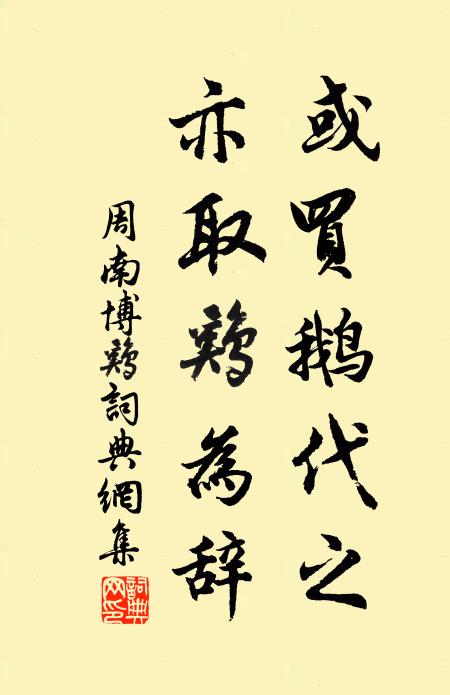 或買鵝代之
亦取鷄為辞
周南博鷄詞典網集
詞典網印